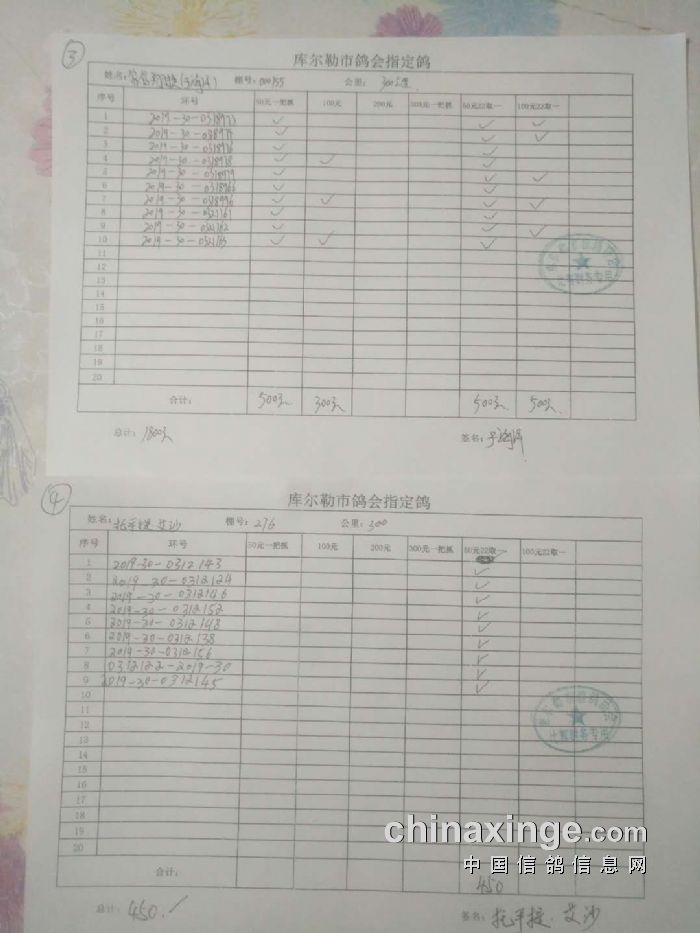 ③
库尔勒市鸽会指定鸽
姓名： 棚号：000155 公里：300公里
序号 环号 50元一把抓 100元 200元 300元一把抓 50元22取一 100元22取一
1 2019-30-0318973 ✓ ✓ ✓
2 2019-30-0318975 ✓ ✓ ✓
3 2019-30-0318976 ✓ ✓
4 2019-30-0318978 ✓ ✓ ✓
5 2019-30-0318979 ✓ ✓ ✓
6 2019-30-0318966 ✓ ✓
7 2019-30-0318996 ✓ ✓ ✓ ✓
8 2019-30-0321761 ✓ ✓
9 2019-30-0321762 ✓ ✓ ✓
10 2019-30-0321763 ✓ ✓ ✓
11
12
13
14
15
16
17
18
19
20
合计： 500元 300元 500元 500元
总计：1800元 签名：
④
库尔勒市鸽会指定鸽
姓名：托乎提 艾沙 棚号：276 公里：300
序号 环号 50元一把抓 100元 200元 300元一把抓 50元22取一 100元22取一
1 2019-30-0312143
2 2019-30-0312124 ✓
3 2019-30-0312146 ✓
4 2019-30-0312152 ✓
5 2019-30-0312148 ✓
6 2019-30-0312138 ✓
7 2019-30-0312156 ✓
8 0312122-2019-30 ✓
9 2019-30-0312145 ✓
10
11
12
13
14
15
16
17
18
19
20
合计： 450
总计：450. 签名：托乎提.艾沙
chinaxinge.com
中国信鸽信息网